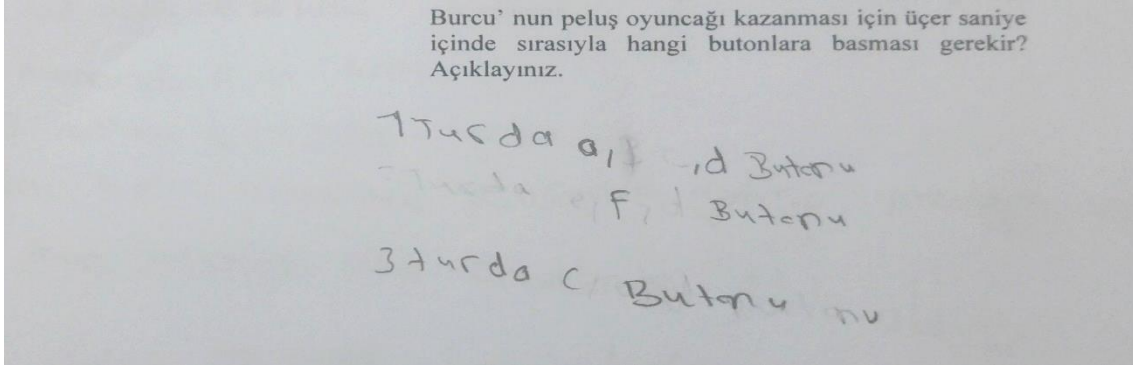 Burcu' nun peluş oyuncağı kazanması için üçer saniye
içinde sırasıyla hangi butonlara basması gerekir?
Açıklayınız.
1 Turda a, ,d Butonu
F, Butonu
3 turda C Butonu nu